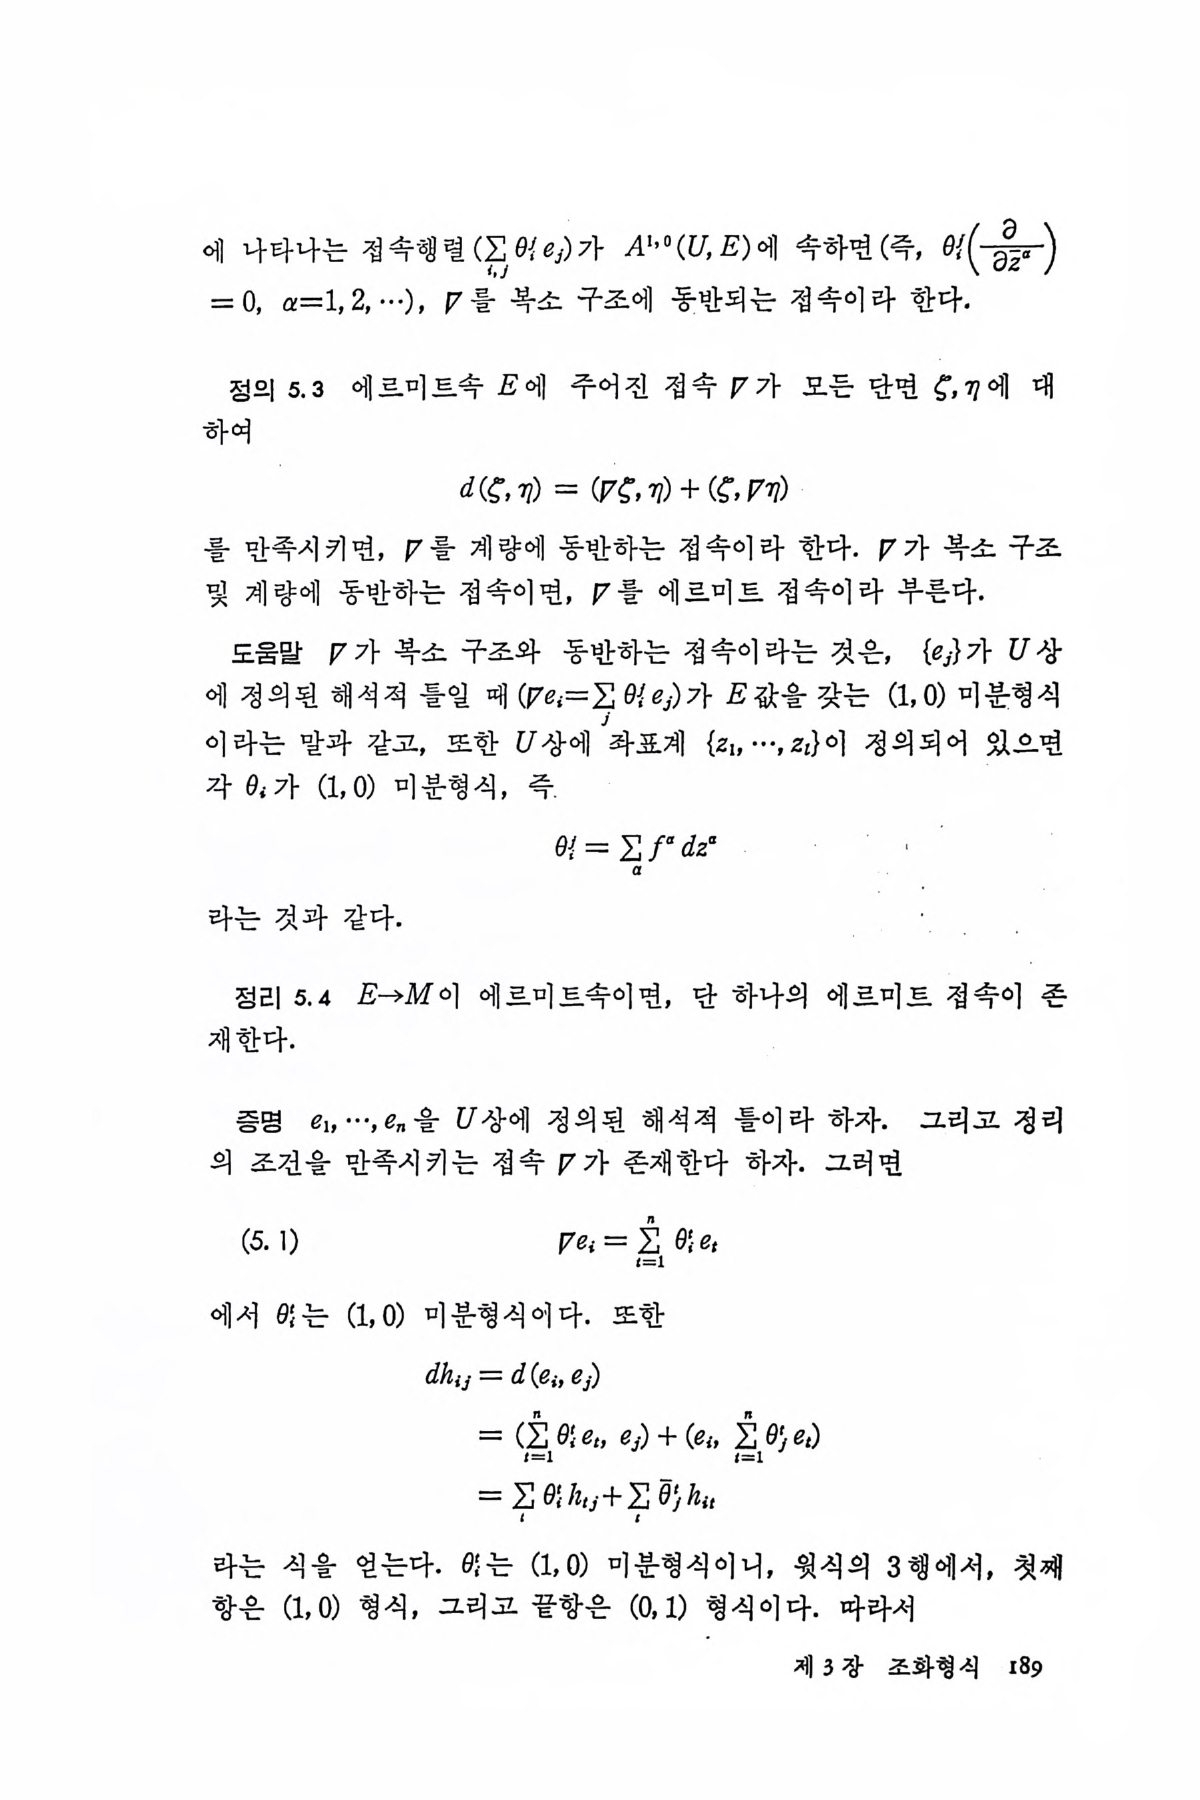 에 나타나는 접속행렬 (∑_{i,j} θ_i^j e_j)가 A^{1,0}(U, E)에 속하면 (즉, θ_i^j(∂/∂z̄^α)
= 0, α=1, 2, ⋯), ∇를 복소 구조에 동반되는 접속이라 한다.
정의 5.3 에르미트속 E에 주어진 접속 ∇가 모든 단면 ζ, η에 대
하여
d(ζ, η) = (∇ζ, η) + (ζ, ∇η)
를 만족시키면, ∇를 계량에 동반하는 접속이라 한다. ∇가 복소 구조
및 계량에 동반하는 접속이면, ∇를 에르미트 접속이라 부른다.
도움말 ∇가 복소 구조와 동반하는 접속이라는 것은, {e_j}가 U상
에 정의된 해석적 틀일 때 (∇e_i=∑_j θ_i^j e_j)가 E값을 갖는 (1, 0) 미분형식
이라는 말과 같고, 또한 U상에 좌표계 {z_1, ⋯, z_l}이 정의되어 있으면
각 θ_i가 (1, 0) 미분형식, 즉
θ_i^j = ∑_α f^α dz^α
라는 것과 같다.
정리 5.4 E→M이 에르미트속이면, 단 하나의 에르미트 접속이 존
재한다.
증명 e_1, ⋯, e_n을 U상에 정의된 해석적 틀이라 하자. 그리고 정리
의 조건을 만족시키는 접속 ∇가 존재한다 하자. 그러면
(5.1) ∇e_i = ∑_{t=1}^n θ_i^t e_t
에서 θ_i^t는 (1, 0) 미분형식이다. 또한
dh_{ij} = d(e_i, e_j)
= (∑_{t=1}^n θ_i^t e_t, e_j) + (e_i, ∑_{t=1}^n θ_j^t e_t)
= ∑_t θ_i^t h_{tj} + ∑_t θ̄_j^t h_{it}
라는 식을 얻는다. θ_i^t는 (1, 0) 미분형식이니, 윗식의 3행에서, 첫째
항은 (1, 0) 형식, 그리고 끝항은 (0, 1) 형식이다. 따라서
제 3 장 조화형식 189